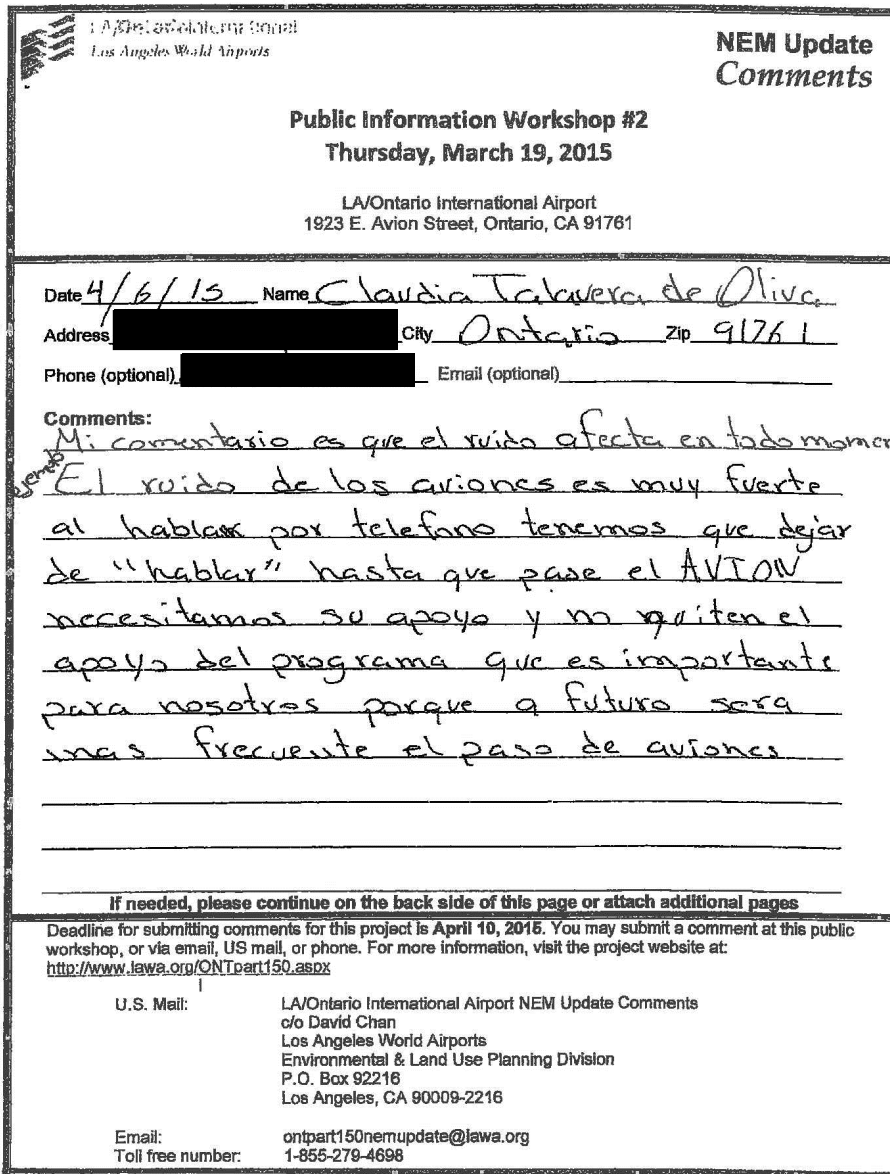 LA/Ontario International
Los Angeles World Airports
NEM Update
Comments
Public Information Workshop #2
Thursday, March 19, 2015
LA/Ontario International Airport
1923 E. Avion Street, Ontario, CA 91761
Date 4/6/15 Name Claudia Talavera de Oliva
Address City Ontario Zip 91761
Phone (optional) Email (optional)
Comments:
Mi comentario es que el ruido afecta en todo momen
ejemplo El ruido de los aviones es muy fuerte
al hablar por telefono tenemos que dejar
de "hablar" hasta que pase el AVION
necesitamos su apoyo y no quiten el
apoyo del programa que es importante
para nosotros porque a futuro sera
mas frecuente el paso de aviones
If needed, please continue on the back side of this page or attach additional pages
Deadline for submitting comments for this project is April 10, 2015. You may submit a comment at this public
workshop, or via email, US mail, or phone. For more information, visit the project website at:
http://www.lawa.org/ONTpart150.aspx
U.S. Mail: LA/Ontario International Airport NEM Update Comments
c/o David Chan
Los Angeles World Airports
Environmental & Land Use Planning Division
P.O. Box 92216
Los Angeles, CA 90009-2216
Email: ontpart150nemupdate@lawa.org
Toll free number: 1-855-279-4698